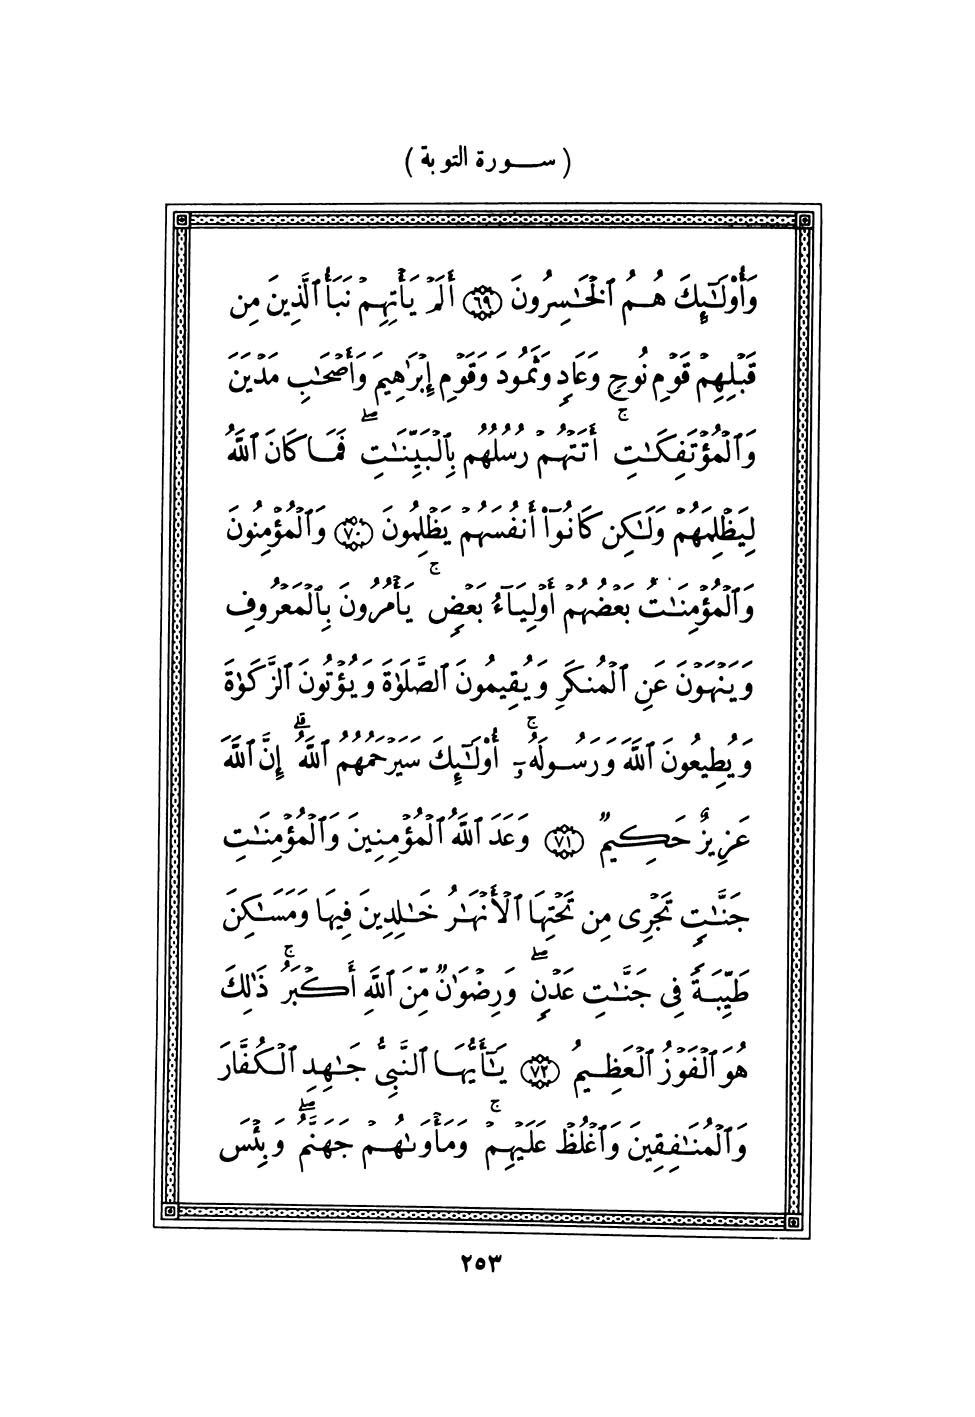 ( سورة التوبة )
وَأُوْلَـٰٓئِكَ هُمُ ٱلْخَـٰسِرُونَ ٦٩ أَلَمْ يَأْتِهِمْ نَبَأُ ٱلَّذِينَ مِن
قَبْلِهِمْ قَوْمِ نُوحٍ وَعَادٍ وَثَمُودَ وَقَوْمِ إِبْرَٰهِيمَ وَأَصْحَـٰبِ مَدْيَنَ
وَٱلْمُؤْتَفِكَـٰتِ ۚ أَتَتْهُمْ رُسُلُهُم بِٱلْبَيِّنَـٰتِ ۖ فَمَا كَانَ ٱللَّهُ
لِيَظْلِمَهُمْ وَلَـٰكِن كَانُوٓاْ أَنفُسَهُمْ يَظْلِمُونَ ٧٠ وَٱلْمُؤْمِنُونَ
وَٱلْمُؤْمِنَـٰتُ بَعْضُهُمْ أَوْلِيَآءُ بَعْضٍ ۚ يَأْمُرُونَ بِٱلْمَعْرُوفِ
وَيَنْهَوْنَ عَنِ ٱلْمُنكَرِ وَيُقِيمُونَ ٱلصَّلَوٰةَ وَيُؤْتُونَ ٱلزَّكَوٰةَ
وَيُطِيعُونَ ٱللَّهَ وَرَسُولَهُۥٓ ۚ أُوْلَـٰٓئِكَ سَيَرْحَمُهُمُ ٱللَّهُ ۗ إِنَّ ٱللَّهَ
عَزِيزٌ حَكِيمٌ ٧١ وَعَدَ ٱللَّهُ ٱلْمُؤْمِنِينَ وَٱلْمُؤْمِنَـٰتِ
جَنَّـٰتٍ تَجْرِى مِن تَحْتِهَا ٱلْأَنْهَـٰرُ خَـٰلِدِينَ فِيهَا وَمَسَـٰكِنَ
طَيِّبَةً فِى جَنَّـٰتِ عَدْنٍ ۖ وَرِضْوَٰنٌ مِّنَ ٱللَّهِ أَكْبَرُ ۚ ذَٰلِكَ
هُوَ ٱلْفَوْزُ ٱلْعَظِيمُ ٧٢ يَـٰٓأَيُّهَا ٱلنَّبِىُّ جَـٰهِدِ ٱلْكُفَّارَ
وَٱلْمُنَـٰفِقِينَ وَٱغْلُظْ عَلَيْهِمْ ۚ وَمَأْوَىٰهُمْ جَهَنَّمُ ۖ وَبِئْسَ
٢٥٣